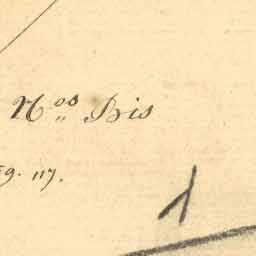 N.os Bis
g. 117.